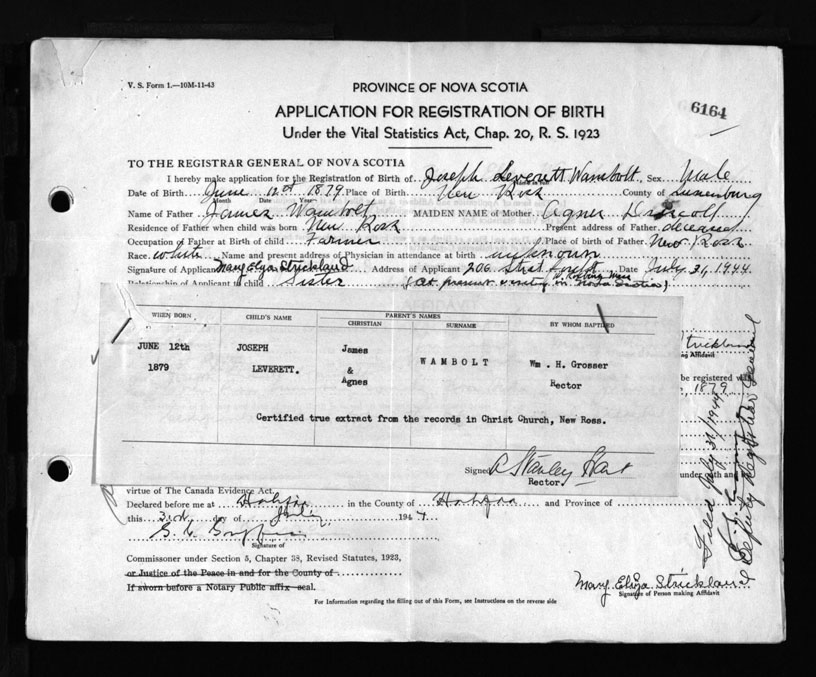 V. S. Form 1.—10M-11-43
PROVINCE OF NOVA SCOTIA
6164
APPLICATION FOR REGISTRATION OF BIRTH
Under the Vital Statistics Act, Chap. 20, R. S. 1923
TO THE REGISTRAR GENERAL OF NOVA SCOTIA
I hereby make application for the Registration of Birth of Joseph Leverett Wambolt Sex Male
Date of Birth June 12 1879 Place of Birth New Ross County of Lunenburg
Month Date Year
Name of Father James Wambolt MAIDEN NAME of Mother Agnes Driscoll
Residence of Father when child was born New Ross Present address of Father deceased
Occupation of Father at Birth of child Farmer Place of birth of Father New Ross
Race white Name and present address of Physician in attendance at birth unknown
Signature of Applicant Mary Eliza Strickland Address of Applicant 206 Date July 31, 1944
Relationship of Applicant to child Sister (at present in Nova Scotia)
WHEN BORN CHILD'S NAME PARENT'S NAMES BY WHOM BAPTIZED
CHRISTIAN SURNAME
JUNE 12th JOSEPH James WAMBOLT Wm. H. Grosser
1879 LEVERETT. & Rector
Agnes
Certified true extract from the records in Christ Church, New Ross.
Signed A Stanley Hart
Rector.
Strickland
ing Affidavit
be registered with
, 1879
under oath and
virtue of The Canada Evidence Act.
Declared before me at Halifax in the County of Halifax and Province of
this 3rd day of July 1944
Signature of
Commissioner under Section 5, Chapter 38, Revised Statutes, 1923,
or Justice of the Peace in and for the County of
If sworn before a Notary Public affix seal.
Mary Eliza Strickland
Signature of Person making Affidavit
For Information regarding the filling out of this Form, see Instructions on the reverse side
Filed July 31/1944
Deputy Registrar General